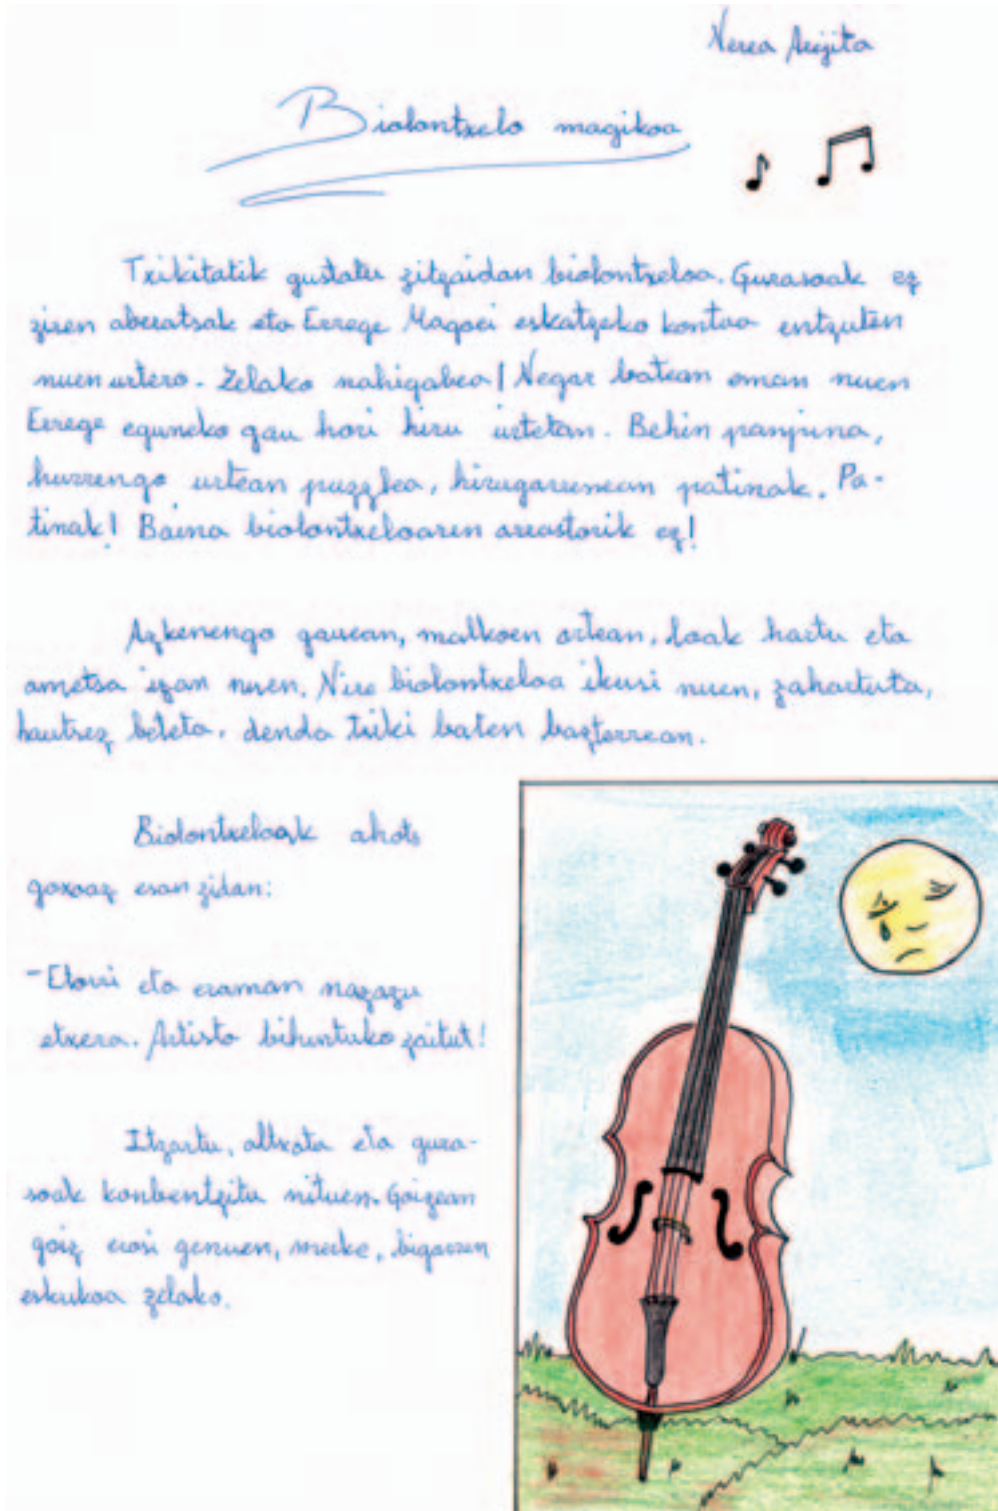 Nerea Arejita
Biolontxelo magikoa
Txikitatik gustatu zitzaidan biolontxeloa. Gurasoak ez
ziren aberatsak eta Errege Magoei eskatzeko kontua entzuten
nuen urtero. Zelako nahigabea! Negar batean eman nuen
Errege eguneko gau hori hiru urtetan. Behin panpina,
hurrengo urtean puzzlea, hirugarrenean patinak. Pa-
tinak! Baina biolontxeloaren arrastorik ez!
Azkenengo gauean, malkoen artean, loak hartu eta
ametsa izan nuen. Nire biolontxeloa ikusi nuen, zahartuta,
hautsez beteta, denda txiki baten bazterrean.
Biolontxeloak ahots
goxoaz esan zidan:
-Etorri eta eraman nazazu
etxera. Artista bihurtuko zaitut!
Itzartu, altxata eta gura-
soak konbentzitu nituen. Goizean
goiz erosi genuen, merke, bigarren
eskukoa zelako.